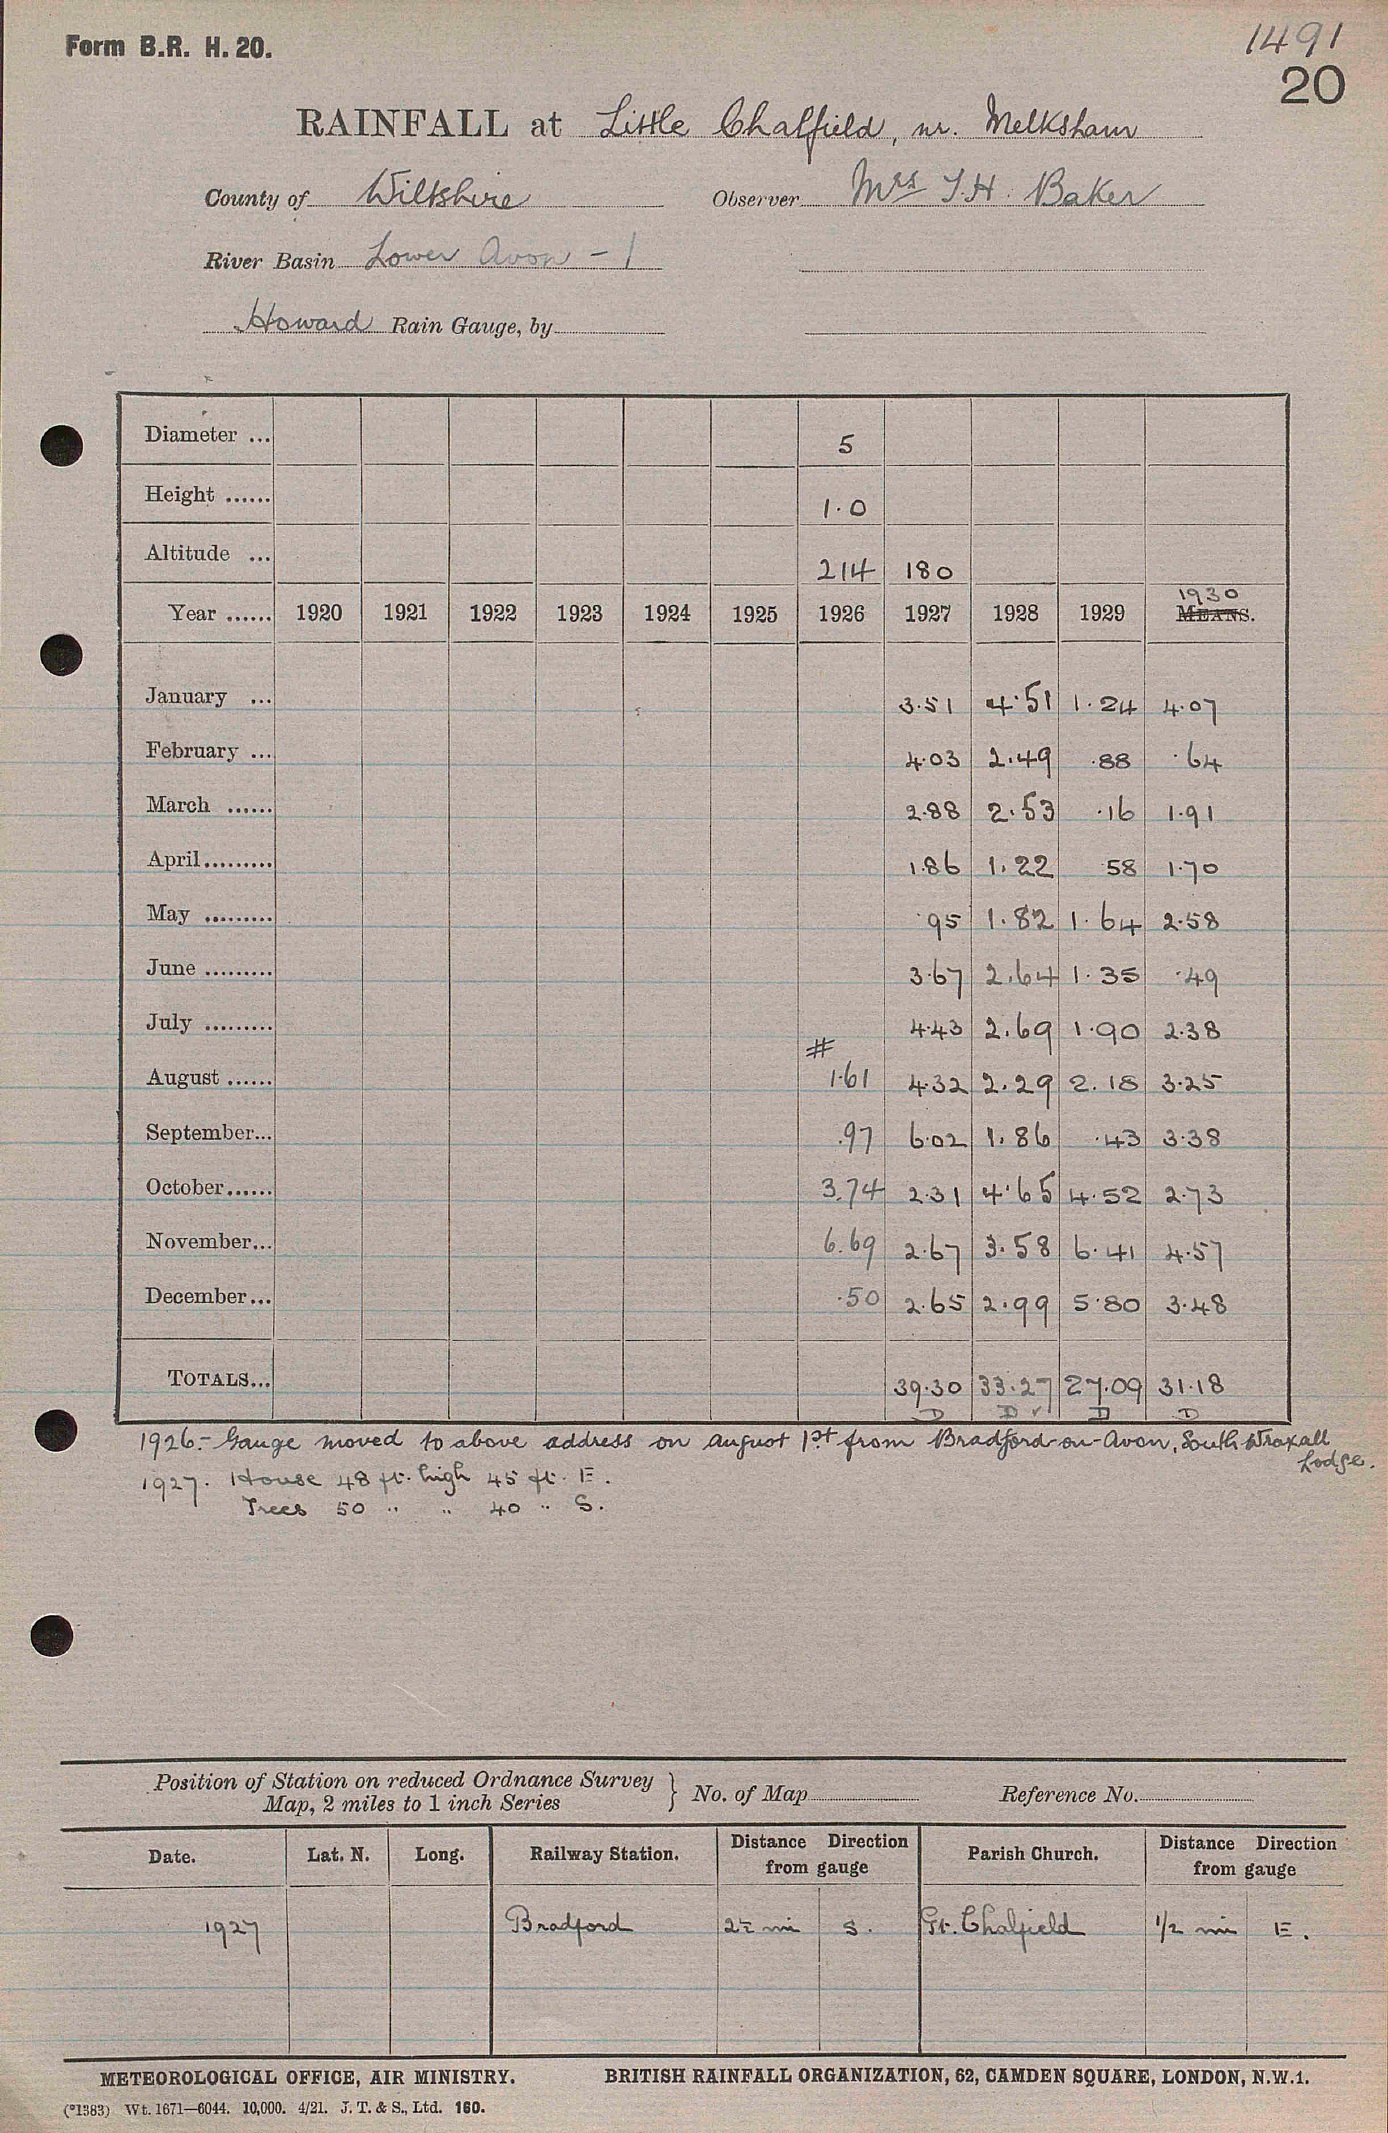 Form B.R. H. 20.
1491
20
RAINFALL at Little Chalfield, nr. Melksham
County of Wiltshire Observer Mrs T.H. Baker
River Basin Lower Avon - 1
Howard Rain Gauge, by
Diameter ... 5
Height ...... 1.0
Altitude ... 214 180
1930
Year ...... 1920 1921 1922 1923 1924 1925 1926 1927 1928 1929 MEANS.
January ... 3.51 4.51 1.24 4.07
February ... 4.03 2.49 .88 .64
March ...... 2.88 2.53 .16 1.91
April......... 1.86 1.22 58 1.70
May ......... .95 1.82 1.64 2.58
June ......... 3.67 2.64 1.35 .49
July ......... 4.43 2.69 1.90 2.38
#
August ...... 1.61 4.32 2.29 2.18 3.25
September... .97 6.02 1.86 .43 3.38
October...... 3.74 2.31 4.65 4.52 2.73
November... 6.69 2.67 3.58 6.41 4.57
December... .50 2.65 2.99 5.80 3.48
TOTALS... 39.30 33.27 27.09 31.18
D D ✓ D D
1926.- Gauge moved to above address on August 1st from Bradford-on-Avon, South Wraxall
Lodge.
1927. House 48 ft. high 45 ft. E.
Trees 50 " " 40 " S.
Position of Station on reduced Ordnance Survey
Map, 2 miles to 1 inch Series } No. of Map Reference No.
Date. Lat. N. Long. Railway Station. Distance Direction from gauge Parish Church. Distance Direction from gauge
1927 Bradford 2½ mi S. Gt. Chalfield 1/2 mi E.
METEOROLOGICAL OFFICE, AIR MINISTRY. BRITISH RAINFALL ORGANIZATION, 62, CAMDEN SQUARE, LONDON, N.W.1.
(*1383) Wt. 1671—6044. 10,000. 4/21. J. T. & S., Ltd. 160.